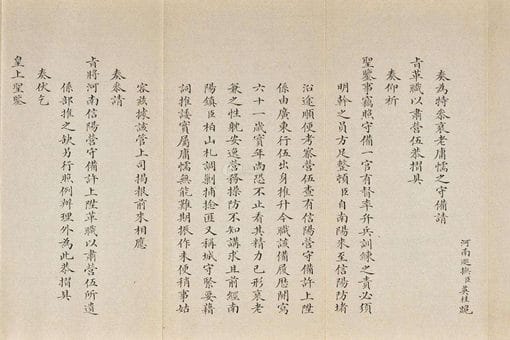 河南巡撫臣英桂跪
奏為特參衰老庸懦之守備請
旨革職以肅營伍恭摺具
奏仰祈
聖鑒事竊照守備一官有督率弁兵訓練之責必須
明幹之員方足整頓臣自南陽來至信陽防堵
沿途順便考察營伍查有信陽營守備許上陞
係由廣東行伍出身推升今職該備履歷開寫
六十一歲實年尚恐不止看其精力已形衰老
兼之性躭安逸營務操防不知講求且前經南
陽鎮臣柏山札調剿捕捻匪又稱城守緊要藉
詞推諉實屬庸懦無能難期振作未便稍事姑
容茲據該管上司揭報前來相應
奏參請
旨將河南信陽營守備許上陞革職以肅營伍所遺
係部推之缺另行照例辦理外為此恭摺具
奏伏乞
皇上聖鑒